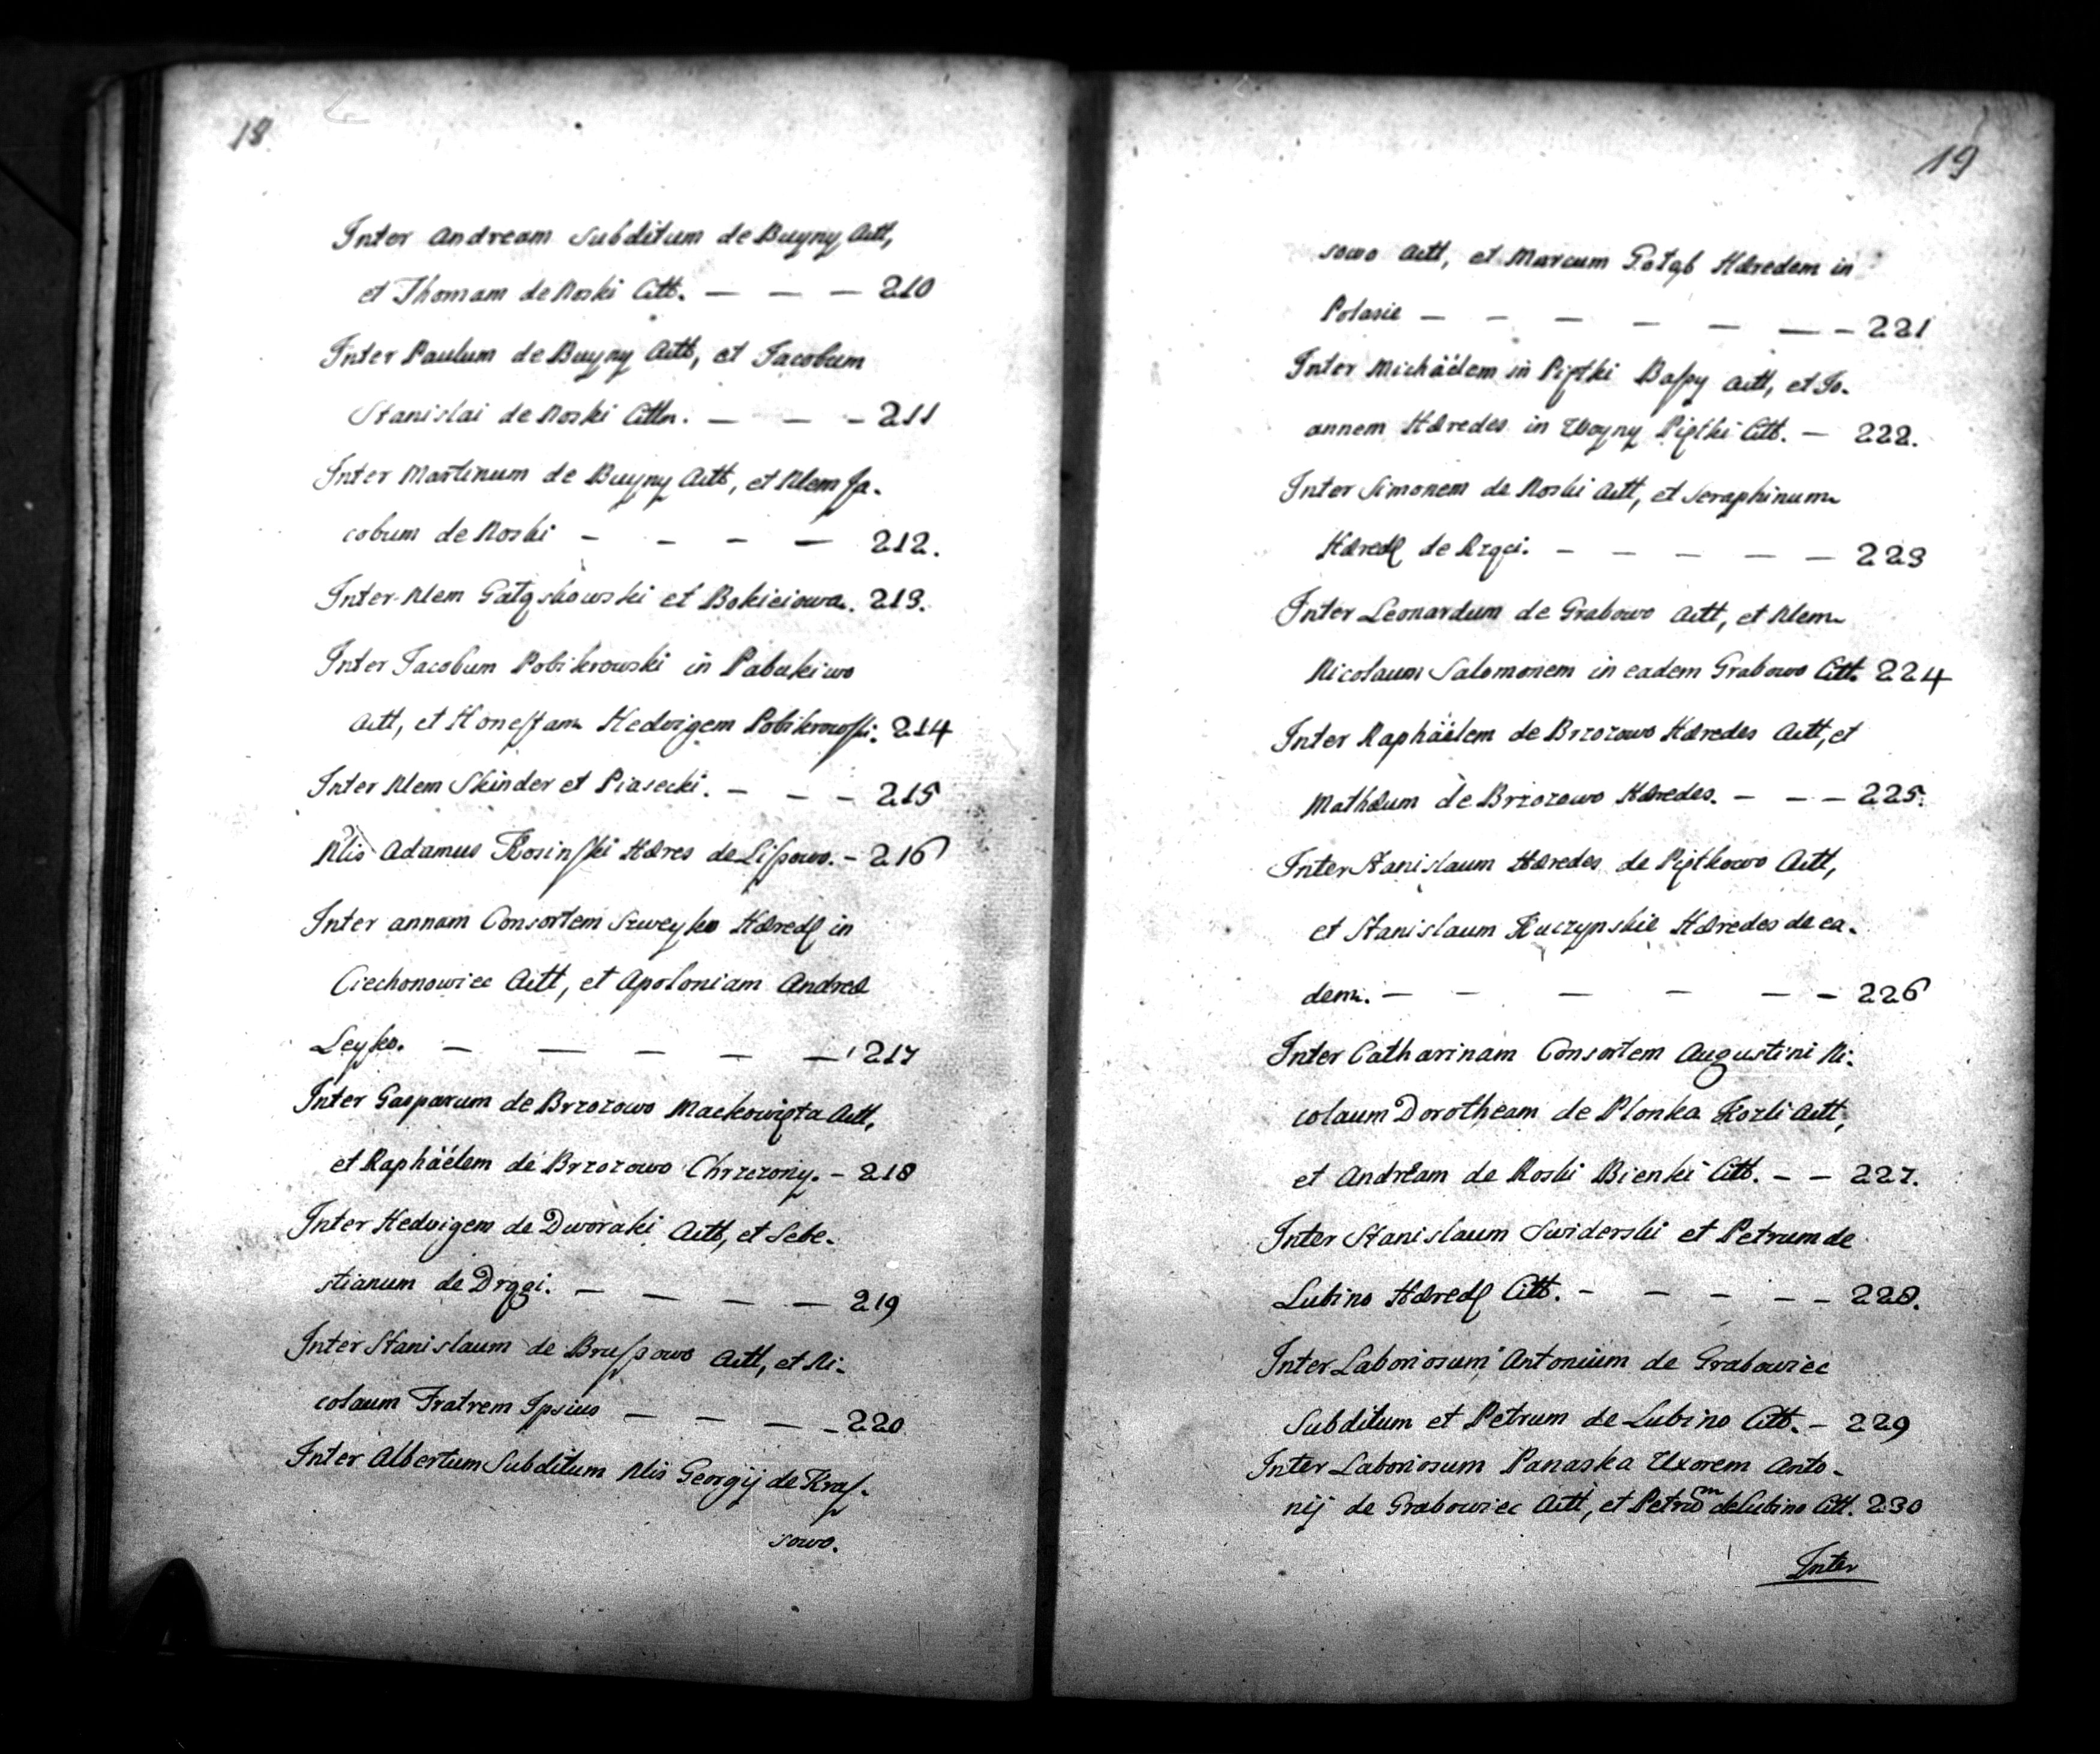 18
Inter Andream Subditum de Buyny Actt,
et Thomam de Noski Citt. — — — 210
Inter Paulum de Buyny Actt, et Jacobum
Stanislai de Noski Cittn. — — — 211
Inter Martinum de Buyny Actt, et Nlem Ja-
cobum de Noski — — — — 212.
Inter Nlem Gałązkowski et Bokiciowa. 213.
Inter Jacobum Pobikrowski in Pabukiwo
Actt, et Honestam Hedvigem Pobikrowski. 214
Inter Nlem Skinder et Piasecki. — — — 215
Nlis Adamus Kosinski Hæres de Lissowo. — 216
Inter Annam Consortem Szweyko Hæred in
Ciechonowiec Actt, et Apoloniam Andreæ
Leyko. — — — — — 217
Inter Gasparum de Brzozowo Mackowięta Actt,
et Raphäélem de Brzozowo Chrzczony. — 218
Inter Hedvigem de Dworaki Actt, et Seba-
stianum de Drągi. — — — — 219
Inter Stanislaum de Brussowo Actt, et Ni-
colaum Fratrem Ipsius — — — — 220
Inter Albertum Subditum Nlis Georgij de Kras-
sowo.
19
sowo Actt, et Marcum Gołąb Hæredem in
Polasie — — — — — — — 221
Inter Michäélem in Piętki Bassy Actt, et Jo-
annem Hæredes in Woyny Piętki Citt. — 222.
Inter Simonem de Noski Actt, et Seraphinum
Hæred de Rzące. — — — — — 223
Inter Leonardum de Grabowo Actt, et Nlem
Nicolaum Salomonem in eadem Grabowo Citt. 224
Inter Raphäélem de Brzozowo Hæredes Actt, et
Mathæum de Brzozowo Hæredes. — — — 225.
Inter Stanislaum Hæredes de Piętkowo Actt,
et Stanislaum Kuczynskie Hæredes de ea-
dem. — — — — — — 226
Inter Catharinam Consortem Augustini Ni-
colaum Dorotheam de Plonka Kozli Actt,
et Andream de Roski Bienki Citt. — — 227.
Inter Stanislaum Swiderski et Petrum de
Lubino Hæred Citt. — — — — — 228.
Inter Laboriosum Antonium de Grabowiec
Subditum et Petrum de Lubino Citt. — 229
Inter Laboriosum Panaska Uxorem Anto-
nij de Grabowiec Actt, et Petrum de Lubino Citt. 230
Inter